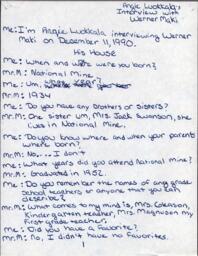 Angie Luokkala's
Interview with
Werner Maki
Me: I'm Angie Luokkala interviewing Werner
Maki on December 11, 1990.
His House
Me: When and were were you born?
Mr. M: National Mine.
Me: Um, what year?
Mr. M: 1934
Me: Do you have any Brothers or Sisters?
Mr. M: One sister um, Mrs. Jack Swanson, she
lives in National Mine.
Me: Do you know where and when your parents
where born?
Mr. M: No.... I don't
Me: What years did you attend National Mine?
Mr. M: Graduated in 1952.
Me: Do you remember the names of any grade
school teachers or anyone that you can
describe?
Mr. M: What comes to my mind is, Mrs. Coleason,
Kindergarten teacher, Mrs. Magnuson my
first grade teacher.
Me: Did you have a favorite?
Mr. M: No, I didn't have no favorites.